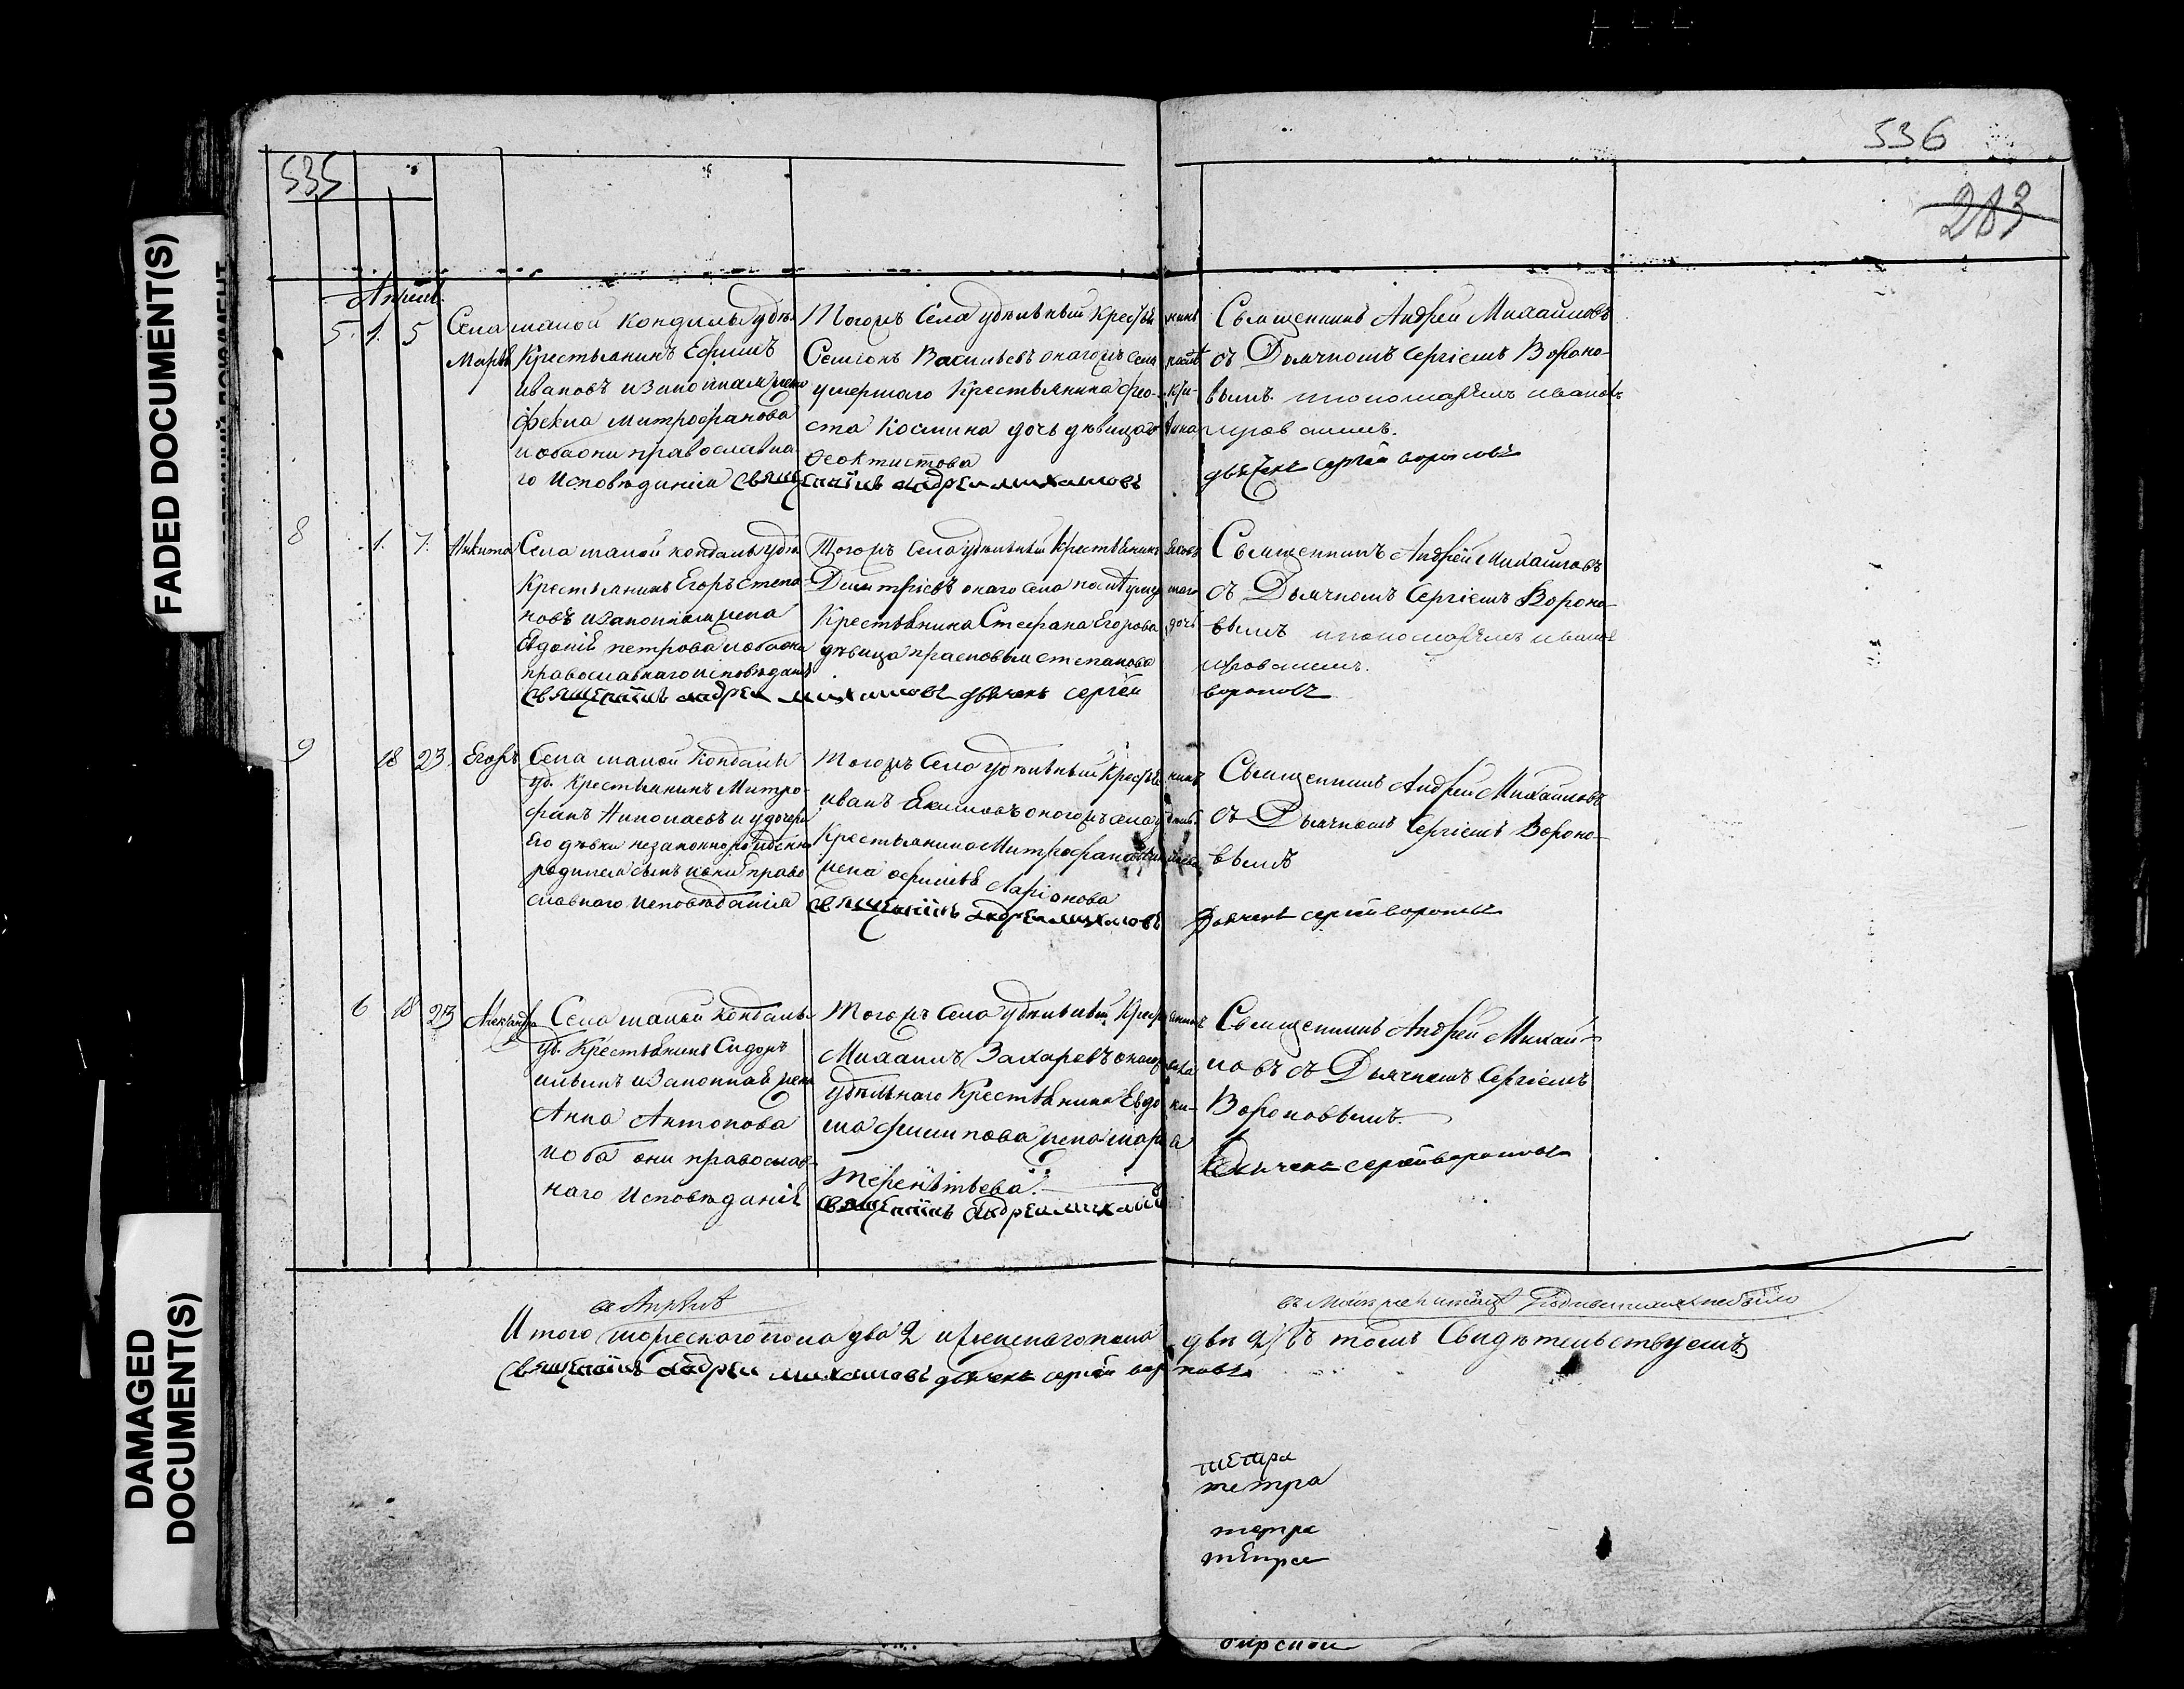 FADED DOCUMENT(S)
DAMAGED
DOCUMENT(S)
535
536
283
Апрель
5. 1. 5
Села малой Кондалы удѣл.
Марѳа
Крестьянинъ Ефимъ
Ивановъ и законная жена
Фекла Митрофанова
и оба они православна-
го Исповѣданія
Тогожъ Села удѣльный Крестьянинъ
Семіонъ Васильевъ оногожъ села
умершаго Крестьянина Фео-
ста Космина дочь дѣвица
Феоктистова
священникъ андреи михаиловъ
Священникъ Андрей Михайловъ
съ Дьячкомъ Сергіемъ Вороно-
вымъ
дьячекъ сергей вороновъ
8 1. 7. Никита
Села малой кондалы удѣл
Крестьянинъ Егоръ Степа-
новъ и законная жена
Евдокія петрова и оба они
православнаго исповѣданія
Тогожъ Села удѣльный Крестьянинъ
Димтріевъ онаго села
Крестьянина Стефана Егорова дочь
дѣвица прасковья степанова
священникъ андреи михаиловъ дьячекъ сергей
Священникъ Андрей Михайловъ
съ Дьячкомъ Сергіемъ Вороно-
вымъ
вороновъ
9 18 23 Егоръ
Села малой Кондалы
уд. Крестьянинъ Митро-
фанъ Николаевъ и у дочери
Его дѣвки незаконнорожденно
родился сынъ право-
славнаго исповѣданія
Тогожъ Села удѣльный Крестьянинъ
иванъ Екимовъ оногожъ села удѣльн.
Крестьянина Митрофана
жена Ларіонова
священникъ андреи михаиловъ
Священникъ Андрей Михайловъ
съ Дьячкомъ Сергіемъ Вороно-
вымъ
Дьячекъ сергей вороновъ
6 18 23 Александра
Села малой Кондалы
уд. Крестьянинъ Сидоръ
ильинъ и законная жена
Анна Антонова
и оба они православ-
наго Исповѣданія
Тогожъ Села удѣльный Крестьянинъ
Михаилъ Захаревъ оногожъ села
удѣльнаго Крестьянина Евдоки-
ма филипова жена
Терентьева.
священникъ андреи михаиловъ
Священникъ Андрей Михай-
ловъ съ Дьячкомъ Сергіемъ
Вороновымъ.
Дьячекъ сергей вороновъ
въ Апрѣлѣ
Итого мужескаго пола два 2 и женскаго пола двѣ 2 въ томъ Свидѣтельствуемъ
священникъ андреи михаиловъ дьячекъ сергей вороновъ
тетра
тетра
тетра
тетра
бирской